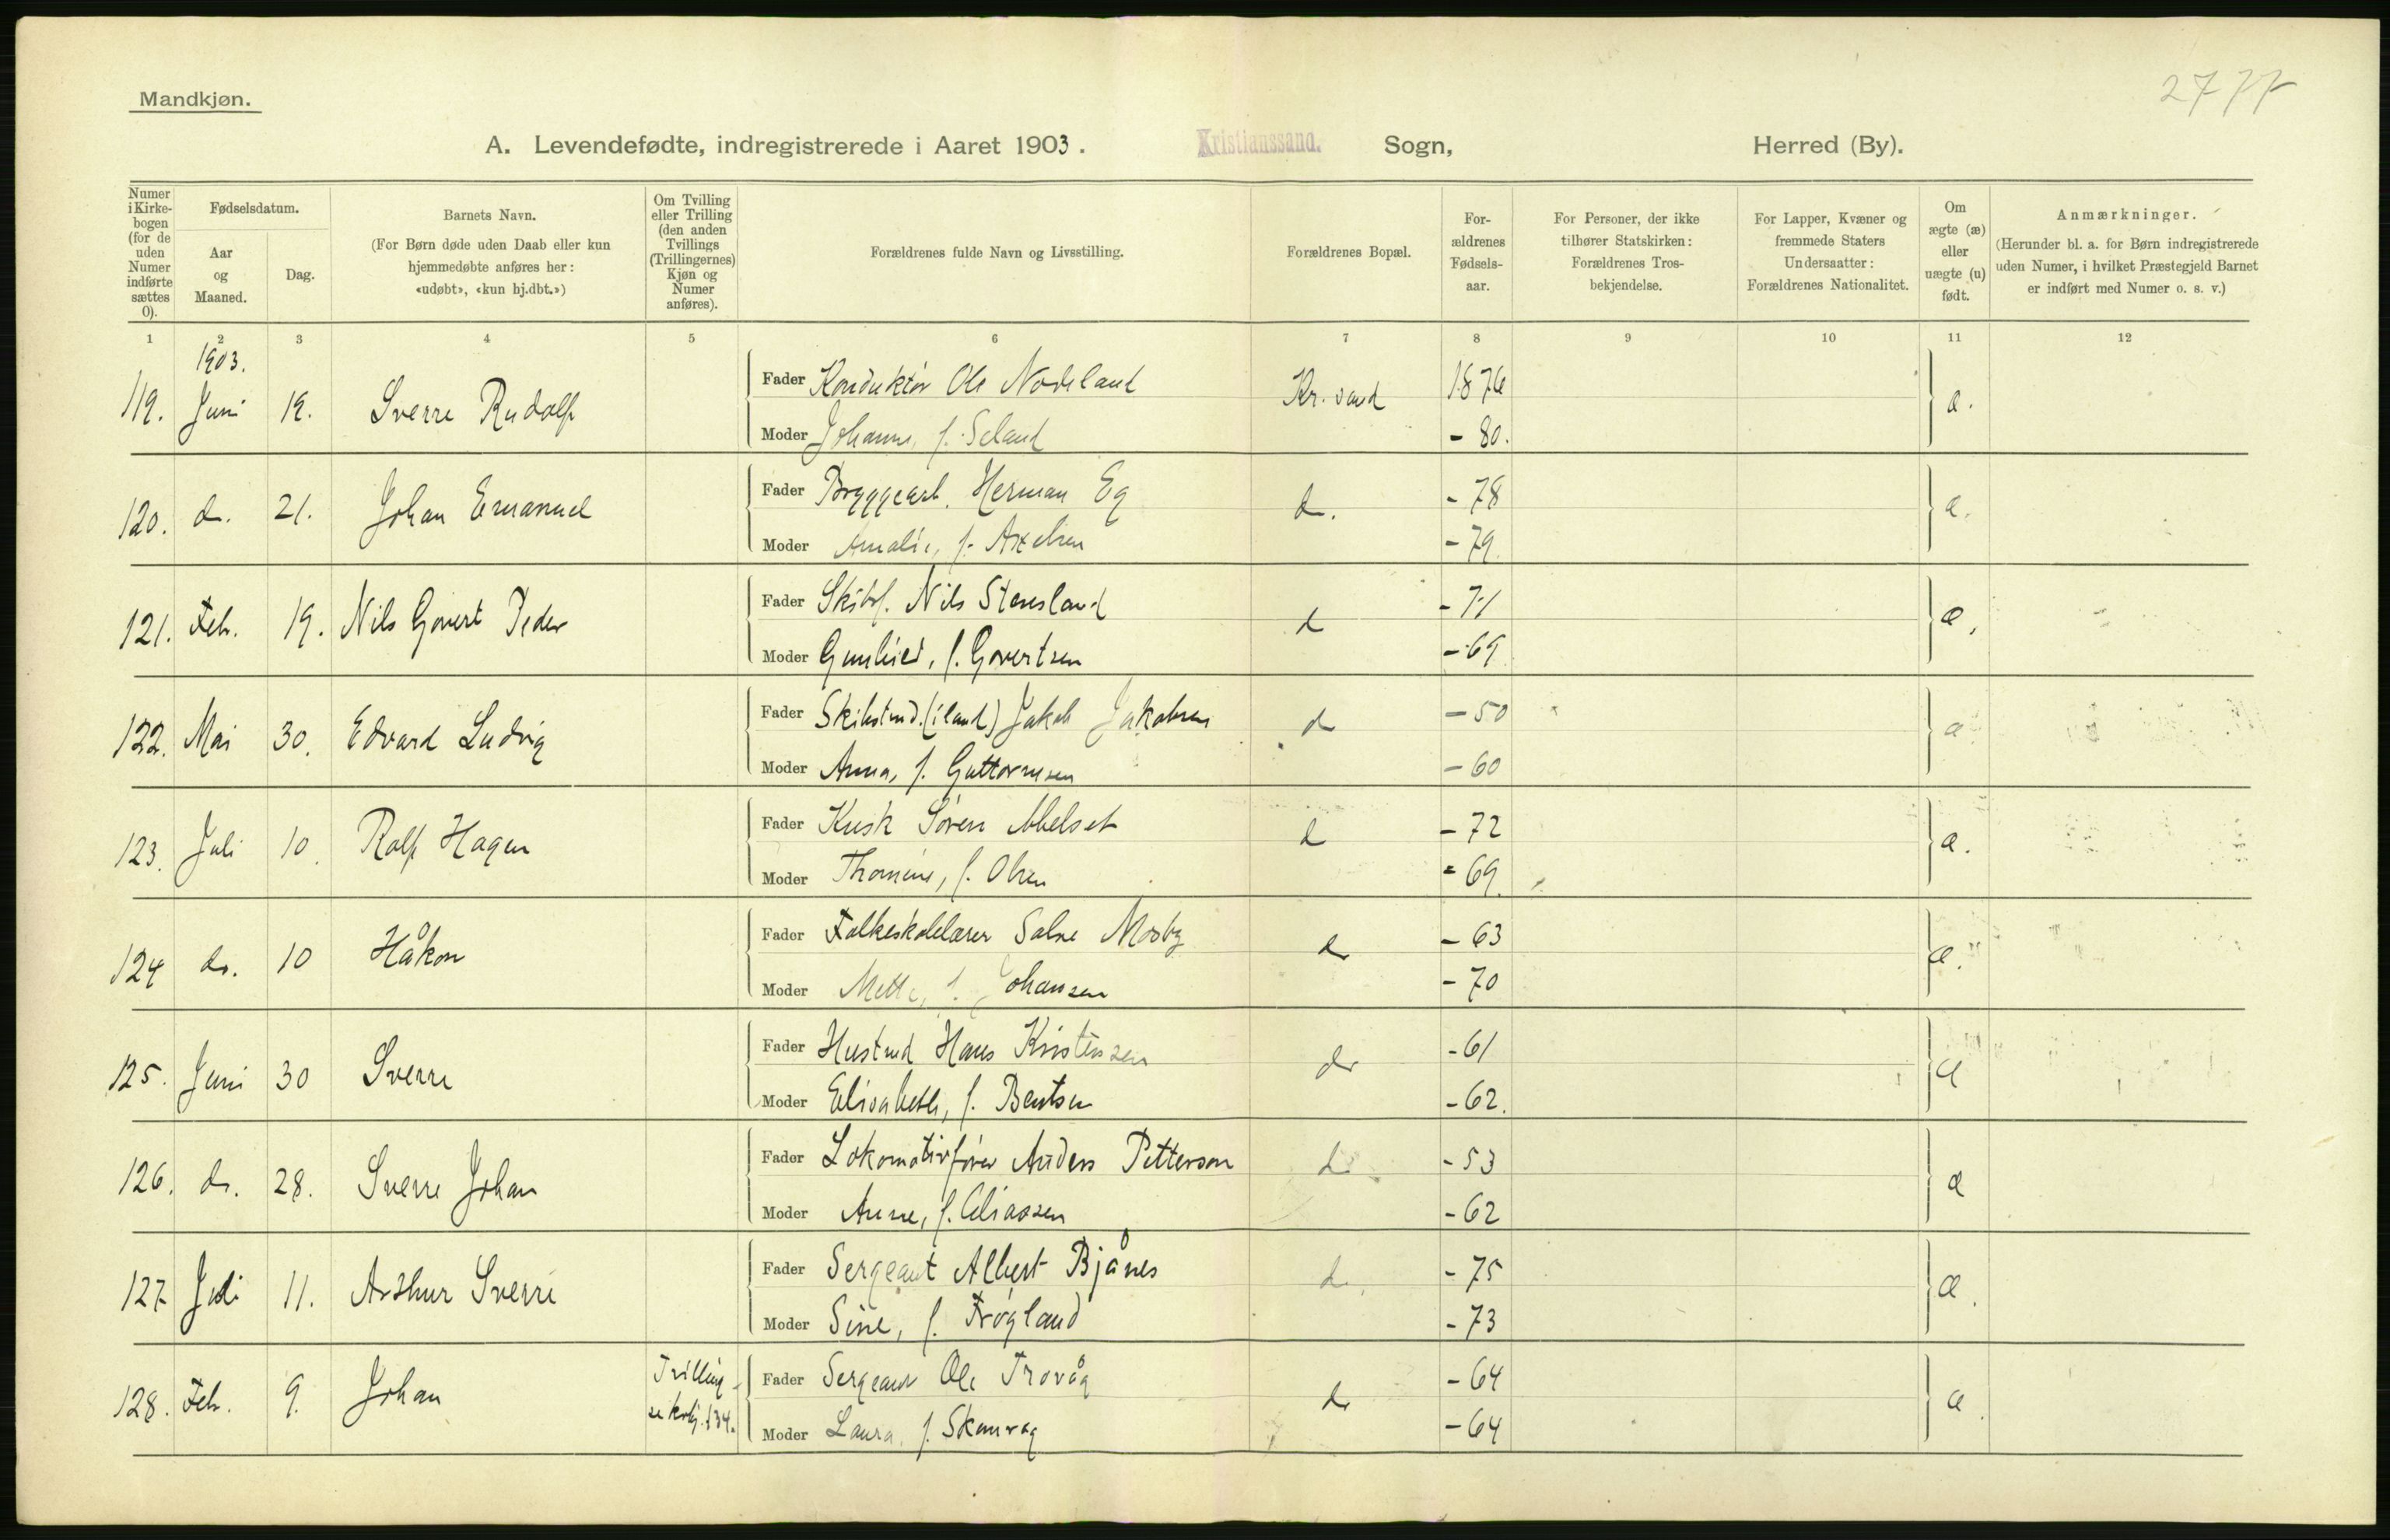 Mandkjøn.
A. Levendefødte, indregistrerede i Aaret 1903. Kristianssand. Sogn, Herred (By).
Numer i Kirke-bogen (for de uden Numer indførte sættes 0).
Fødselsdatum.
Aar og Maaned.
Dag.
Barnets Navn.
(For Børn døde uden Daab eller kun hjemmedøbte anføres her: «udøbt», «kun hj.dbt.»)
Om Tvilling eller Trilling (den anden Tvillings (Trillingernes) Kjøn og Numer anføres).
Forældrenes fulde Navn og Livsstilling.
Forældrenes Bopæl.
For-ældrenes Fødsels-aar.
For Personer, der ikke tilhører Statskirken: Forældrenes Tros-bekjendelse.
For Lapper, Kvæner og fremmede Staters Undersaatter: Forældrenes Nationalitet.
Om ægte (æ) eller uægte (u) født.
Anmærkninger.
(Herunder bl. a. for Børn indregistrerede uden Numer, i hvilket Præstegjeld Barnet er indført med Numer o. s. v.)
1 2 3 4 5 6 7 8 9 10 11 12
1903.
119. Juni 19. Sverre Rudolf Fader Konduktør Ole Nodeland Kr.sand 1876 æ.
Moder Johanne, f. Seland - 80.
120. do. 21. Johan Emanuel Fader Bryggearb. Herman Eg do. - 78 æ.
Moder Amalie, f. Axelsen - 79.
121. Feb. 19. Nils Govert Peder Fader Skibsf. Nils Steresland do - 71 æ.
Moder Gunhild, f. Govertsen - 69.
122. Mai 30. Edvard Ludvig Fader Skibstmd. (iland) Jakob Jakobsen do - 50 æ
Moder Anna, f. Guttormsen - 60
123. Juli 10. Rolf Hagen Fader Kusk Søren Abelset do - 72 æ.
Moder Thomine, f. Olsen - 69.
124 do. 10 Håkon Fader Folkeskolelærer Salve Mosby do - 63 æ.
Moder Mette, f. Johansen - 70
125. Juni 30 Sverre Fader Hustmd Hans Kristensen do - 61 æ
Moder Elisabeth, f. Bentsen - 62.
126. do. 28. Sverre Johan Fader Lokomotivfører Anders Petterson do - 53 æ
Moder Anne, f. Eliassen - 62
127. Juli 11. Arthur Sverre Fader Sergeant Albert Bjånes do. - 75 æ.
Moder Sine, f. Frøgland - 73
128. Feb. 9. Johan Tvilling Fader Sergeant Ole Trovåg do - 64 æ.
se kvkj. 134. Moder Laura, f. Skarvåg - 64